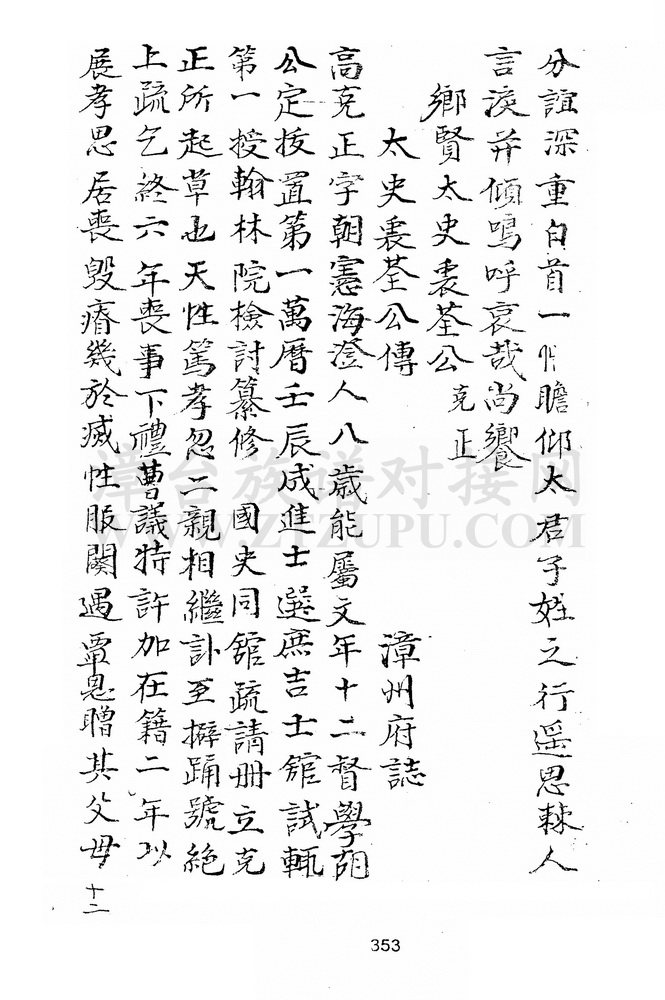 分誼深重自首一忄瞻仰太君子姓之行遥思棘人
言淚并傾嗚呼哀哉尚饗
鄉賢太史裹荃公 克正
太史裹荃公傳 漳州府誌
高克正字朝憲海澄人八歲能屬文年十二督學胡
公定拔置第一萬曆壬辰成進士選庶吉士館試輒
第一授翰林院檢討纂修 國史同館疏請册立克
正所起草也天性篤孝忽二親相繼訃至擗踊號絕
上疏乞終六年喪事下禮曹議特許加在籍二年以
展孝思居喪毀瘠幾於滅性服闋遇覃恩贈其父母
十二
353
漳台族谱对接网
WWW.ZTZUPU.COM